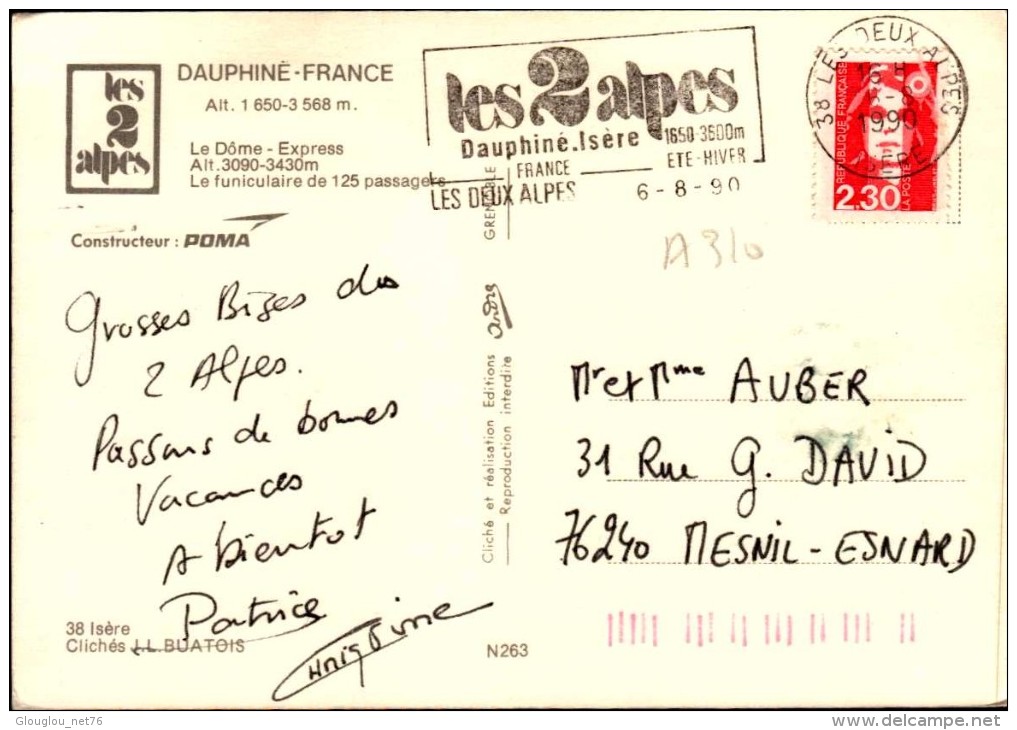 les
2
alpes
DAUPHINÉ-FRANCE
Alt. 1 650-3 568 m.
Le Dôme - Express
Alt. 3090-3430m
Le funiculaire de 125 passagers
Constructeur : POMA
Grosses Bizes des
2 Alpes.
Passons de bonnes
Vacances
A bientot
Patrice
38 Isère
Clichés J.L. BUATOIS
GRENOBLE
André
Cliché et réalisation Editions
Reproduction interdite
N263
les 2 alpes
Dauphiné.Isère 1650-3600m
FRANCE ETE-HIVER
LES DEUX ALPES 6-8-90
38 LES DEUX ALPES
1990
ISERE
REPUBLIQUE FRANÇAISE
LA POSTE
2.30
A310
Mr et Mme AUBER
31 Rue G. DAVID
76240 MESNIL-ESNARD
Glouglou_net76
delcampe.net